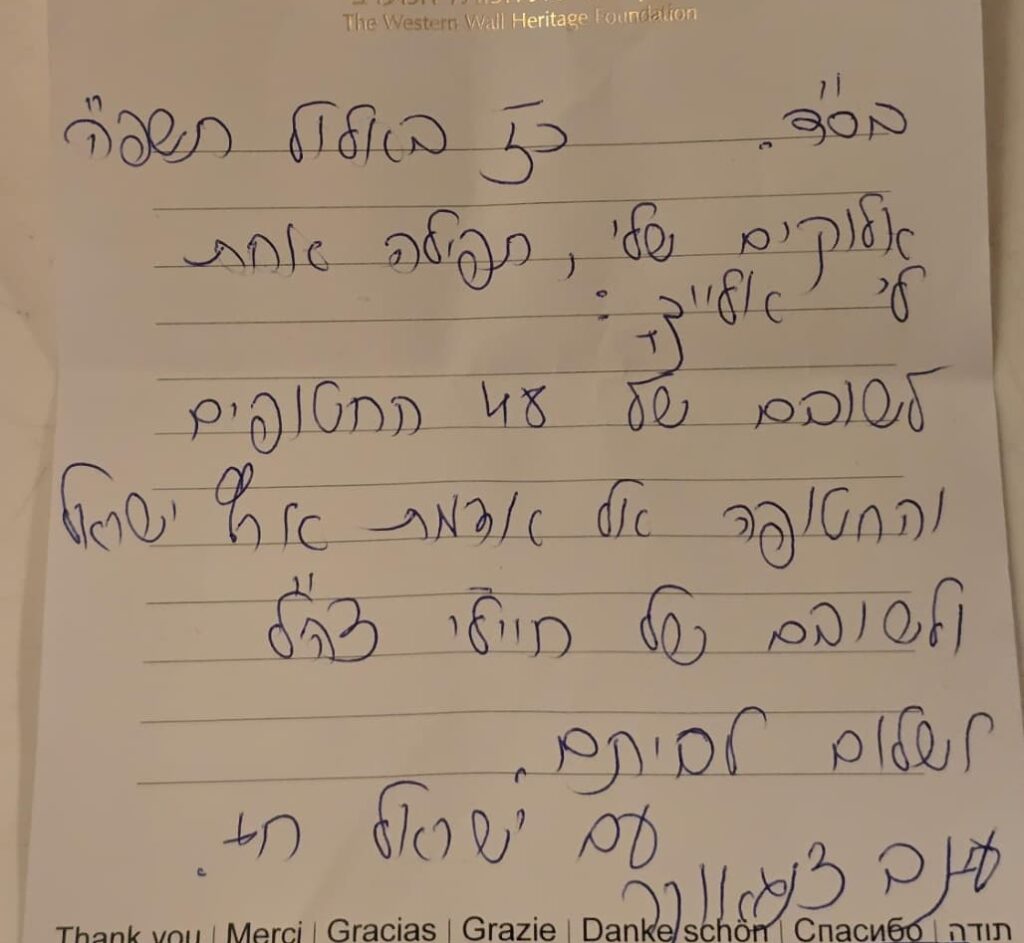 The Western Wall Heritage Foundation
בס"ד. כז באלול תשפ"ה
אלוקים שלי, תפילה אחת
לי אלייך :
לשובם של 48 החטופים
והחטופה אל אדמת ארץ ישראל
ולשובם של חיילי צה"ל
לשלום לביתם.
עם ישראל חי.
עינב צנגאוקר
Thank you | Merci | Gracias | Grazie | Danke schön | Спасибо | תודה